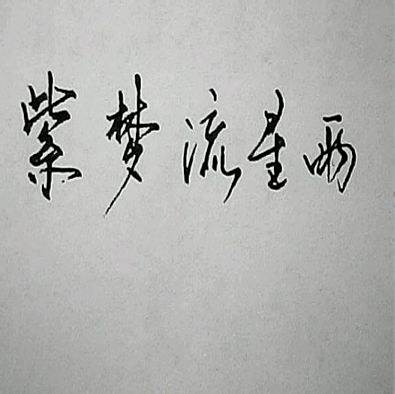 紫梦流星雨